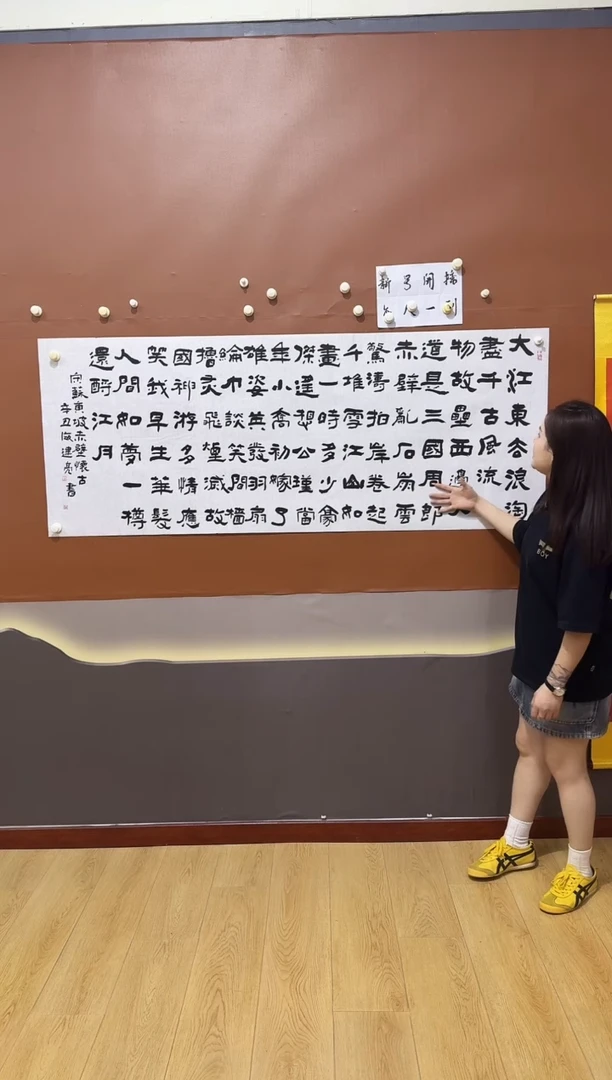 新号開播
人一到
大江東去浪淘
盡千古風流
物故壘西邊人
道是三國周郎
赤壁亂石崩雲
驚濤拍岸卷起
千堆雪江山如
畫一時多少豪
傑遥想公瑾當
年小喬初嫁了
雄姿英發羽扇
綸巾談笑間檣
櫓灰飛煙滅故
國神游多情應
笑我早生華髮
人間如夢一樽
還酹江月
宋蘇東坡赤壁懷古
辛丑歲建亮書
BOY